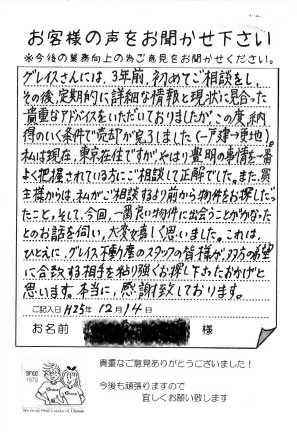 お客様の声をお聞かせ下さい
※今後の業務向上の為ご意見をお聞かせください。
グレイスさんには、3年前、初めてご相談をし、
その後、定期的に詳細な情報と現状に見合った
貴重なアドバイスをいただいておりましたが、この度、納
得のいく条件で売却が完了しました(一戸建→更地)。
私は現在、東京在住ですがやはり豊明の事情を一番
よく把握されている方にご相談して正解でした。また、買
主様からは、私がご相談するより前から物件をお探しだっ
たこと、そして、今回、一番良い物件に出会うことがかなった
とのお話を伺い、大変嬉しく思いました。これは、
ひとえに、グレイス不動産のスタッフの皆様が双方の希望
に合致する相手を粘り強くお探し下さったおかげと
思います。本当に、感謝致しております。
ご記入日 H25年 12月 14日
お名前 様
since
1979
貴重なご意見ありがとうございました!
今後も頑張りますので
宜しくお願い致します